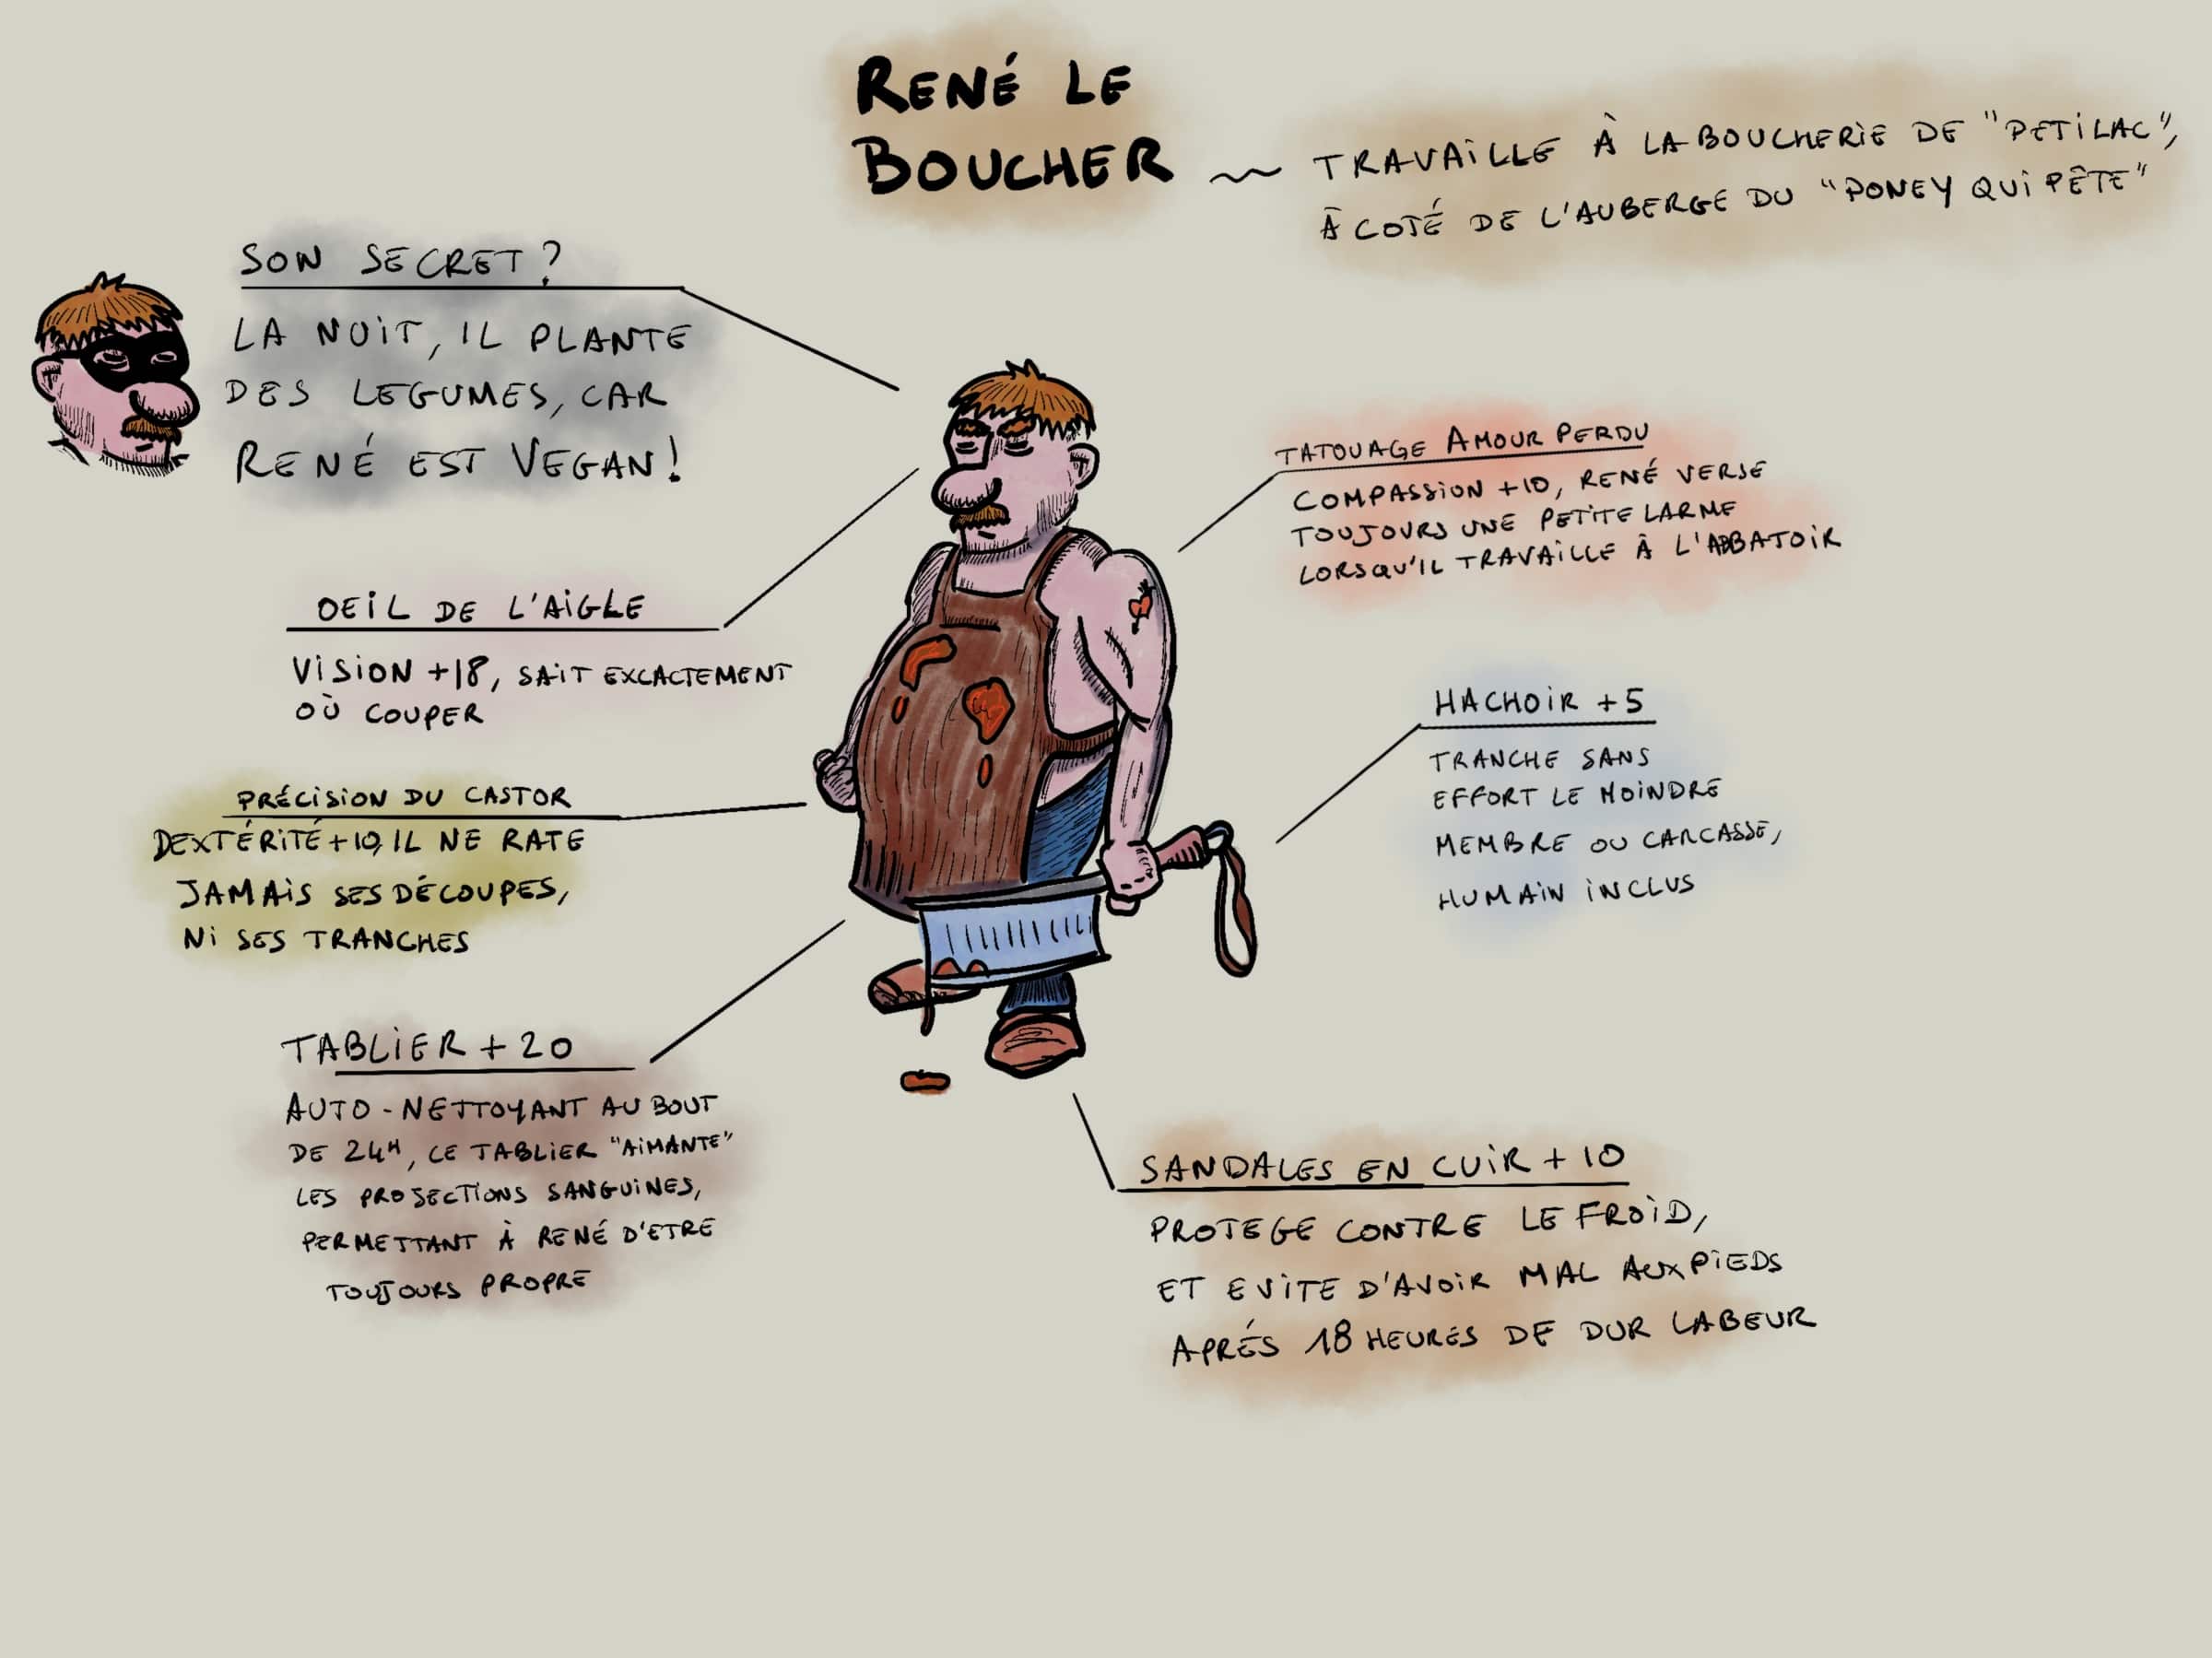 RENÉ LE
BOUCHER
TRAVAILLE À LA BOUCHERIE DE "PETILAC",
À COTÉ DE L'AUBERGE DU "PONEY QUI PÊTE"
SON SECRET ?
LA NUIT, IL PLANTE
DES LEGUMES, CAR
RENÉ EST VEGAN !
TATOUAGE AMOUR PERDU
COMPASSION +10, RENÉ VERSE
TOUJOURS UNE PETITE LARME
LORSQU'IL TRAVAILLE À L'ABBATOIR
OEIL DE L'AIGLE
VISION +18, SAIT EXCACTEMENT
OÙ COUPER
HACHOIR +5
TRANCHE SANS
EFFORT LE MOINDRE
MEMBRE OU CARCASSE,
HUMAIN INCLUS
PRÉCISION DU CASTOR
DEXTÉRITÉ +10, IL NE RATE
JAMAIS SES DÉCOUPES,
NI SES TRANCHES
TABLIER +20
AUTO-NETTOYANT AU BOUT
DE 24H, CE TABLIER "AIMANTE"
LES PROJECTIONS SANGUINES,
PERMETTANT À RENÉ D'ETRE
TOUJOURS PROPRE
SANDALES EN CUIR +10
PROTEGE CONTRE LE FROID,
ET EVITE D'AVOIR MAL AUX PIEDS
APRÉS 18 HEURES DE DUR LABEUR